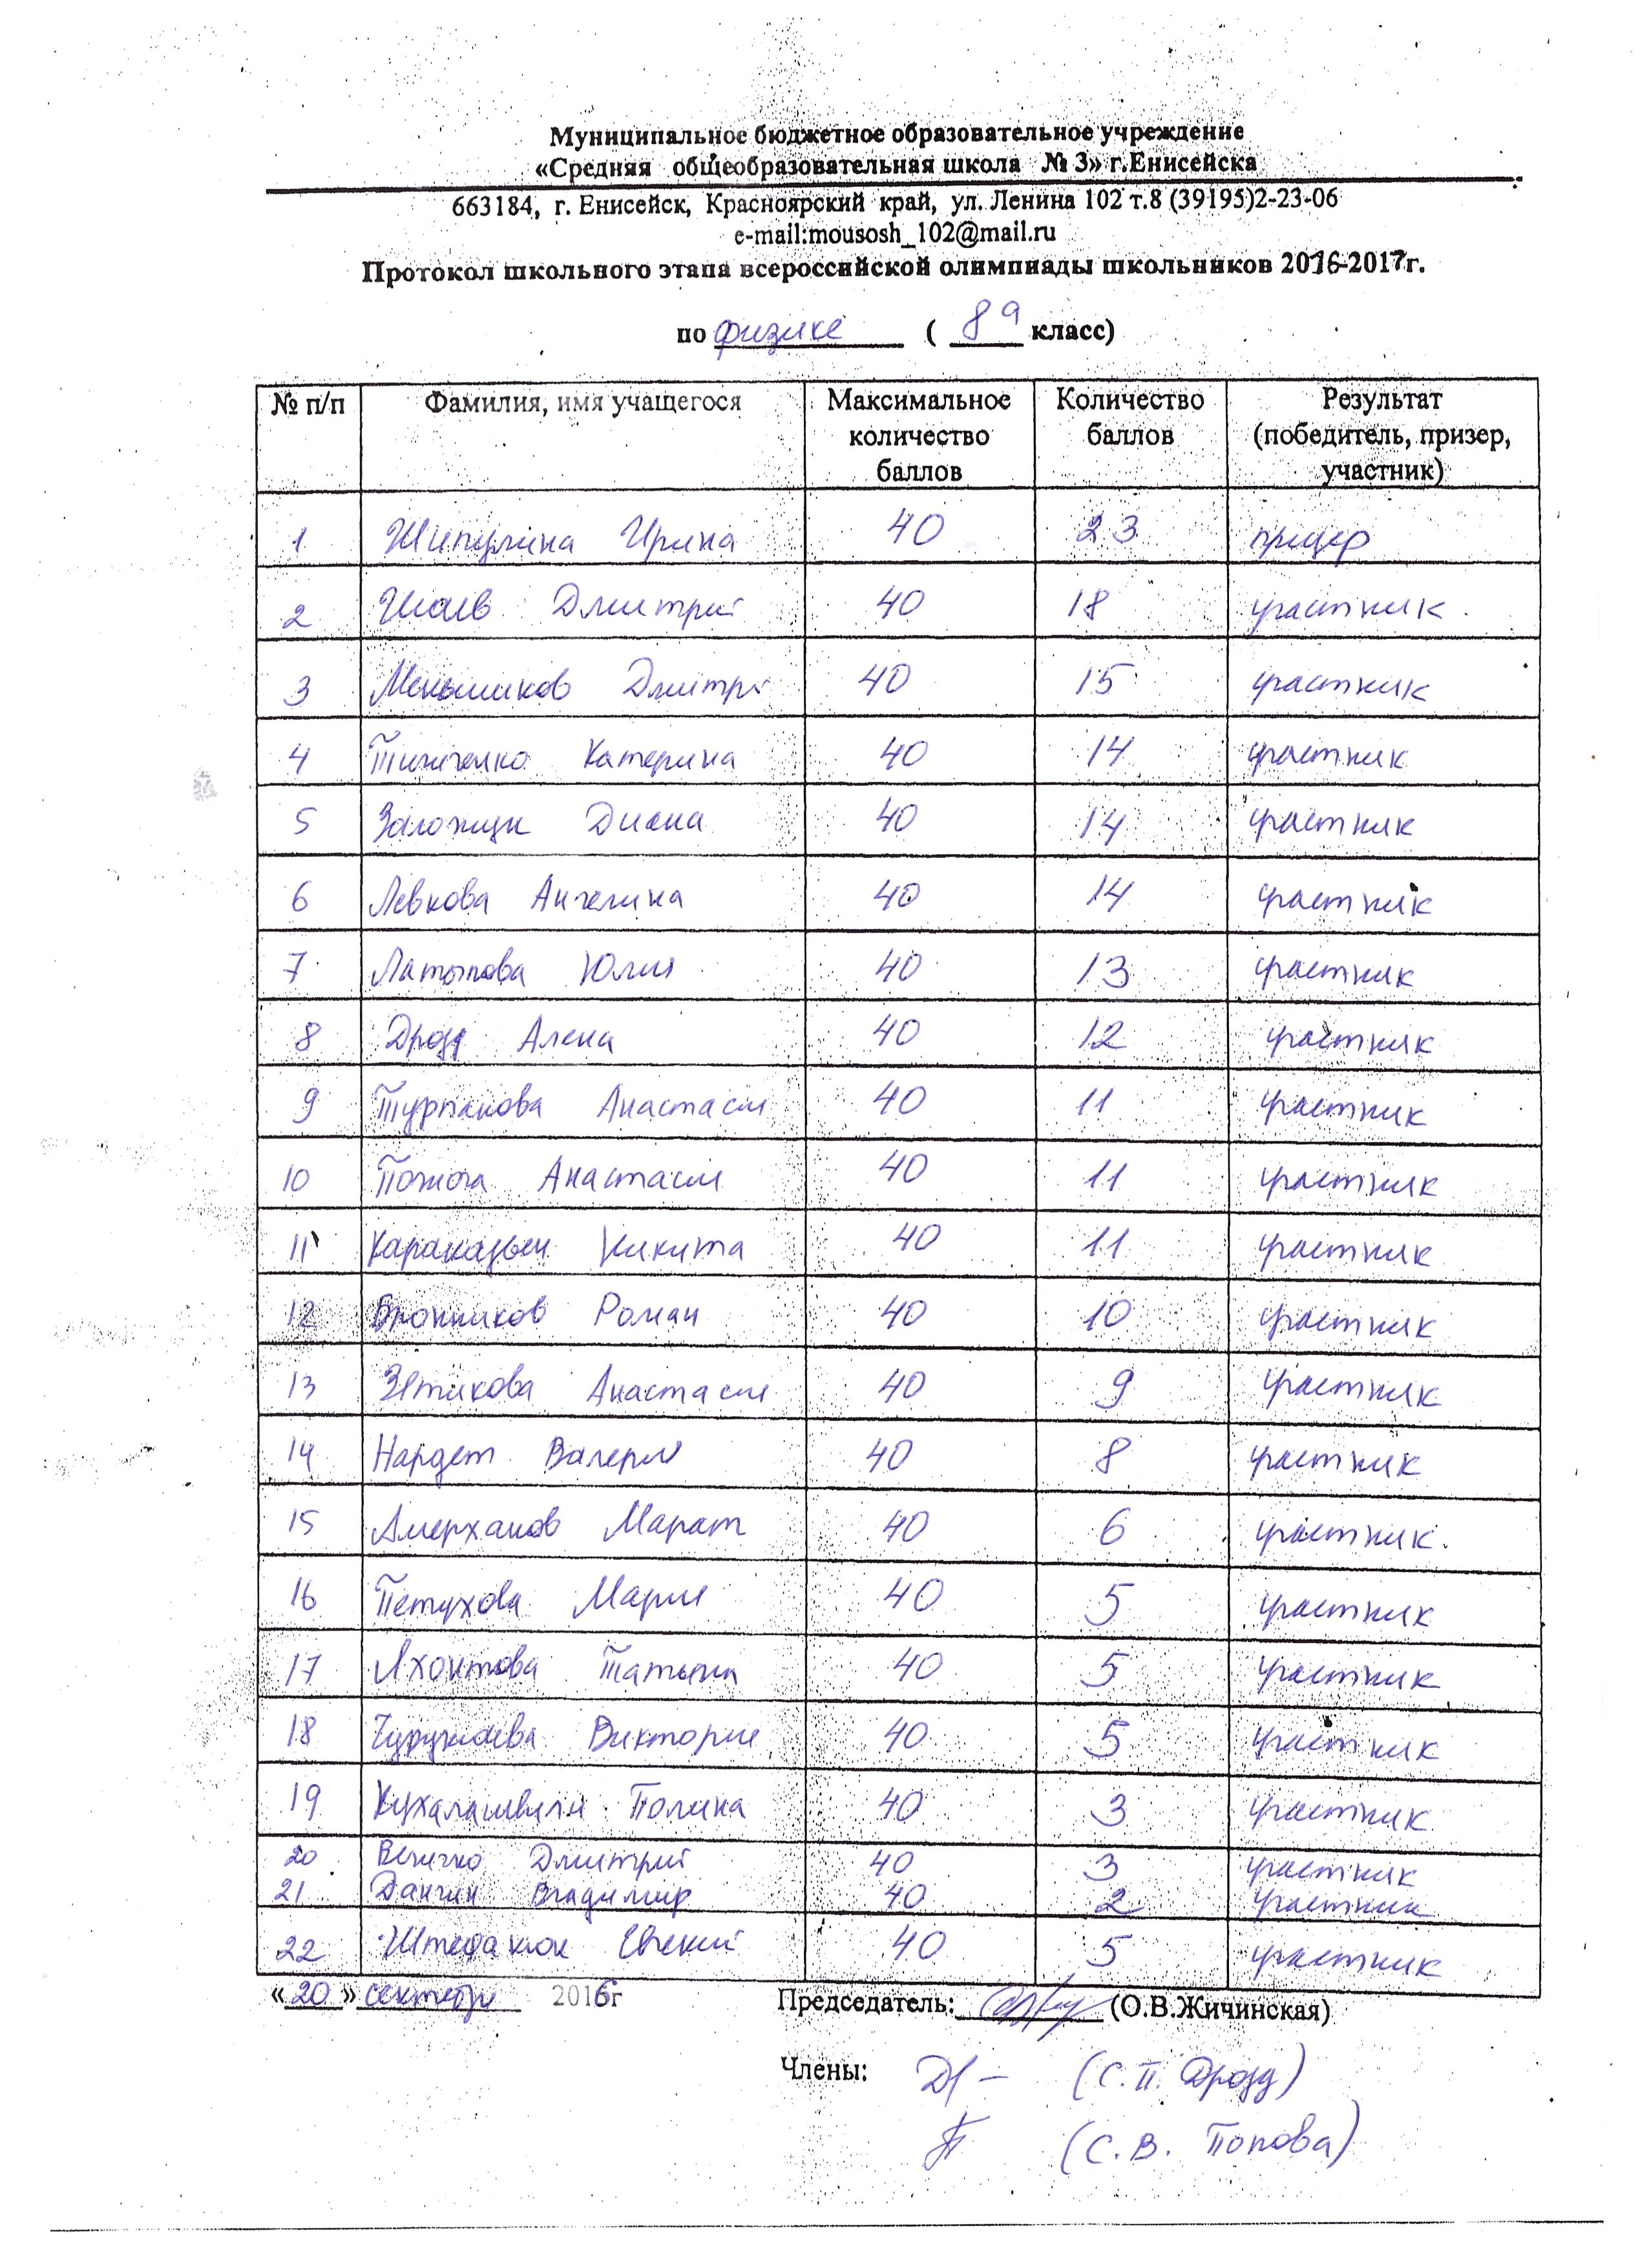 Муниципальное бюджетное образовательное учреждение
«Средняя общеобразовательная школа № 3» г.Енисейска
663184, г. Енисейск, Красноярский край, ул. Ленина 102 т.8 (39195)2-23-06
e-mail:mousosh_102@mail.ru
Протокол школьного этапа всероссийской олимпиады школьников 2016-2017г.
по физике ( 8а класс)
№ п/п Фамилия, имя учащегося Максимальное количество баллов Количество баллов Результат (победитель, призер, участник)
1 Шипулина Ирина 40 23 призер
2 Дмитрий 40 18 участник
3 Меньшиков Дмитрий 40 15 участник
4 Катерина 40 14 участник
5 Диана 40 14 участник
6 Левкова Ангелина 40 14 участник
7 Латыпова Юлия 40 13 участник
8 Дрозд Алена 40 12 участник
9 Турпанова Анастасия 40 11 участник
10 Анастасия 40 11 участник
11 Никита 40 11 участник
12 Бронников Роман 40 10 участник
13 Анастасия 40 9 участник
14 Нардет Валерия 40 8 участник
15 Амерханов Марат 40 6 участник
16 Петухова Мария 40 5 участник
17 Яхонтова Татьяна 40 5 участник
18 Виктория 40 5 участник
19 Кухалашвили Полина 40 3 участник
20 Величко Дмитрий 40 3 участник
21 Данчин Владимир 40 2 участник
22 Штефанюк Евгений 40 5 участник
«20» сентября 2016г Председатель: (О.В.Жичинская)
Члены: (С.П. Дрозд)
(С.В. Попова)